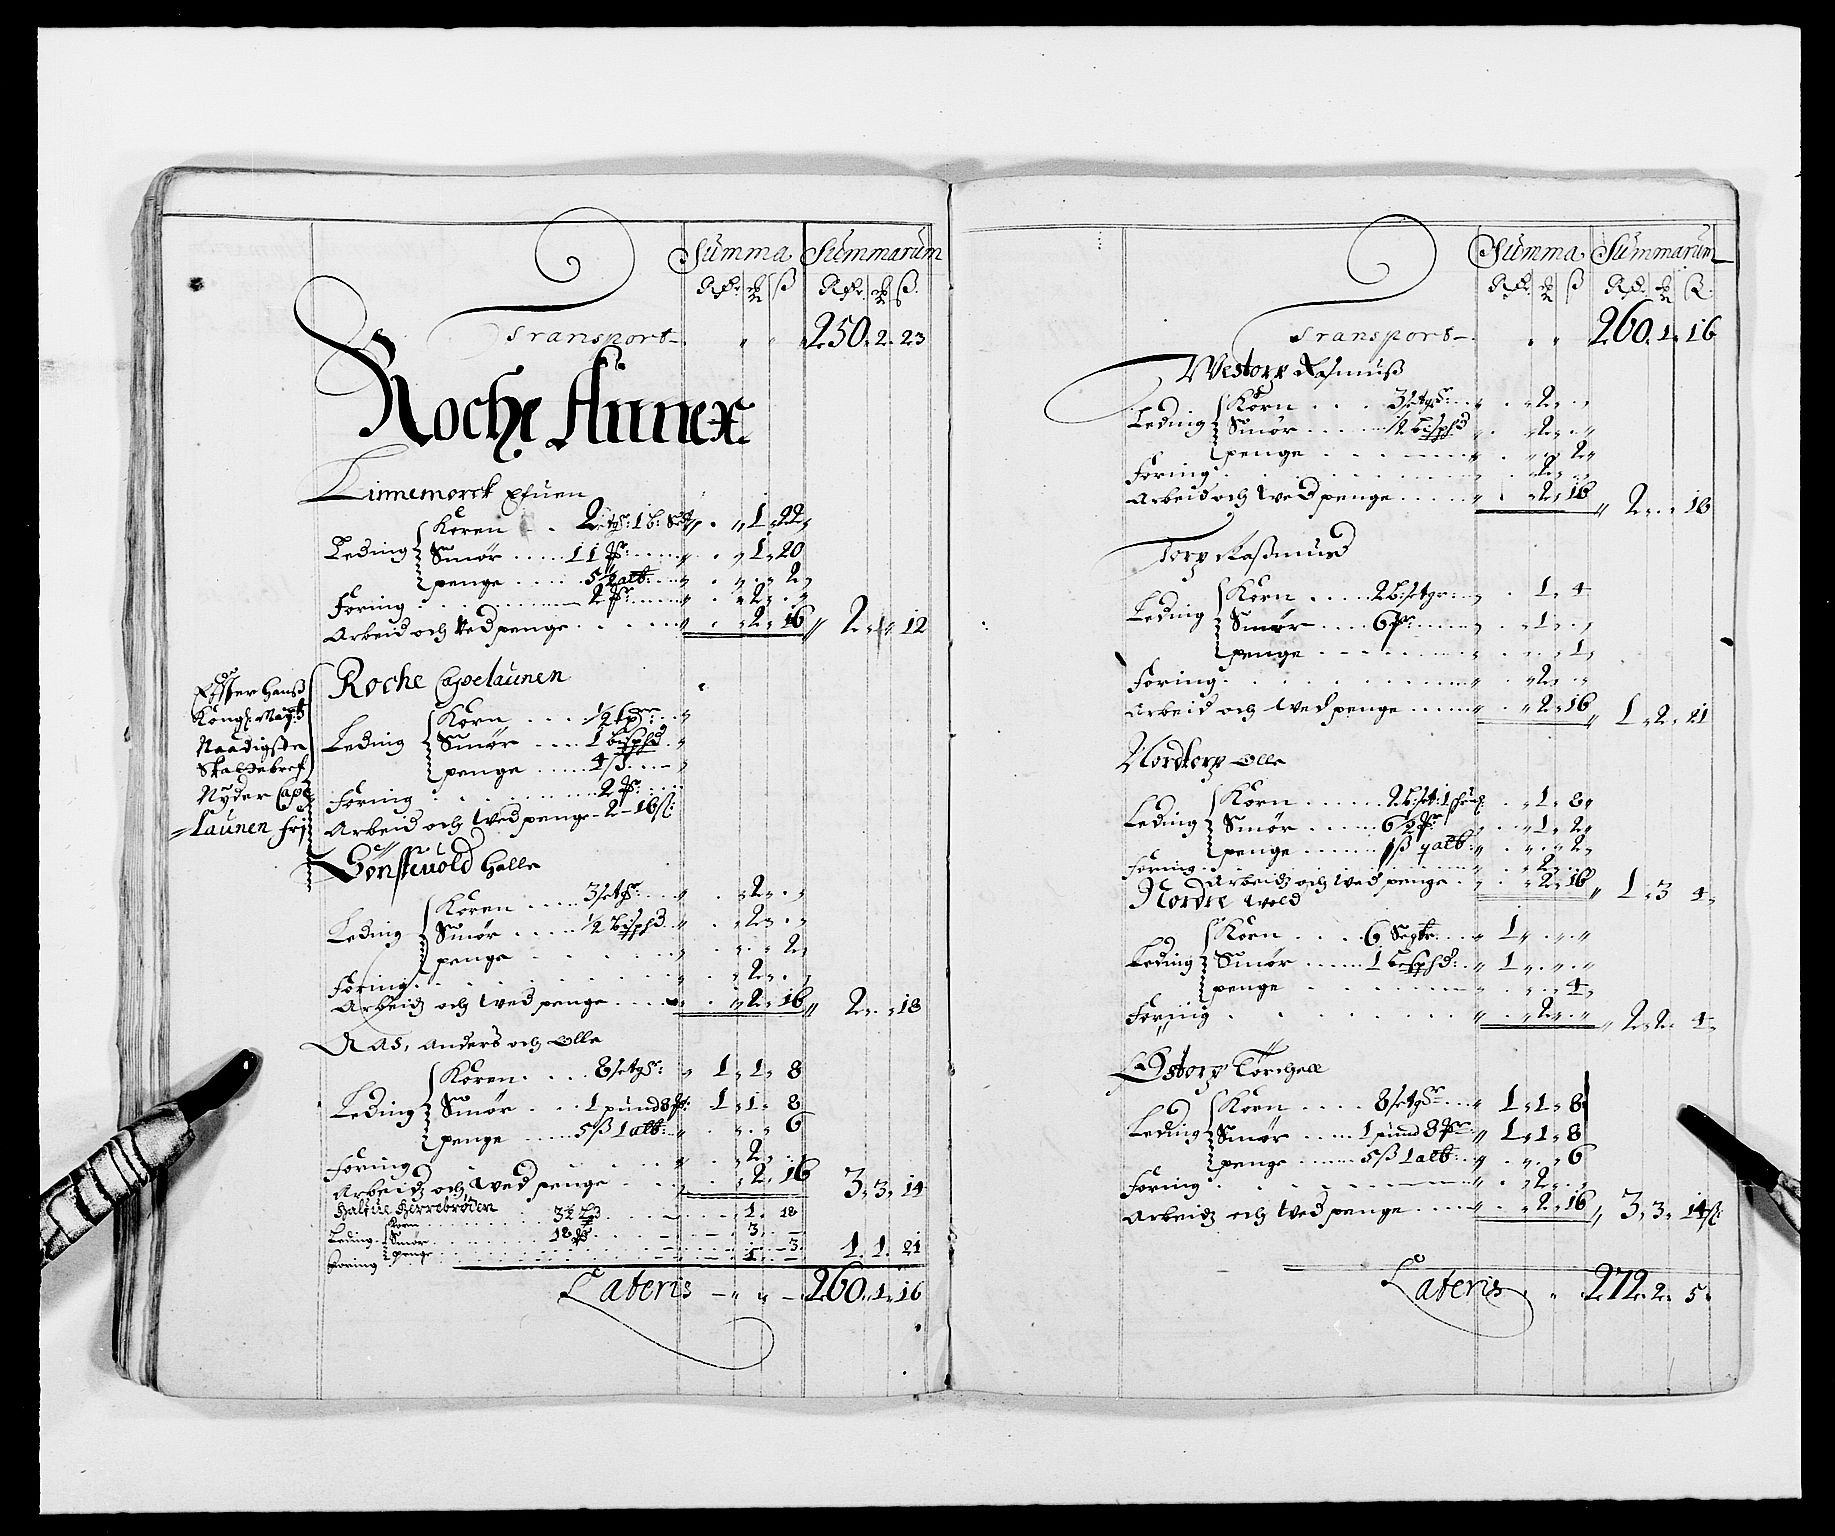 Summa Summarum
Rdr. ß Rdr. ß
Transport 250. 2. 23
Roche Annex
Linnemørck Efuen
Leding
Koren . . 2 setgr: 1 b: 1. 22
Smør . . . . 11 . . . . 1. 20
penge . . . . 5½ alb: . . 2
Foring . . . . 2 . . . . 2
Arbeid och Ved penge . . . . 2. 16 2. 1. 12
Effter Hanß
Kongl: Mayts
Naadigste
Skattebref
Nyder Cape
=launen frj
Roche Capelaunen
Leding
Korn . . . . ½
Smør . . . . 1 bispd
penge . . . . 4 ß
Foring . . . . 2
Arbeid och Wed penge - 2 - 16 ß:
Sønsteuold Halle
Leding
Koren . . . . 3 setgr: 2
Smør . . . . ½ bispd 2
penge 2
Foring 2
Arbeid och Wed penge . . . . 2. 16 2. . 18
Raas, Anders och Olle
Leding
Koren . . . . 8 setgr: 1. 1. 8
Smør . . . 1 pund 8 1. 1. 8
penge . . . . 5 ß 1 alb: 6
Foring 2
Arbeid och Wed penge 2. 16 3. 3. 14
Halfue Herrebrøden
Leding
Korn 3½ 1. 18
Smør 18 3. –
penge 3
Foring 1 – 1. 1. 21
Lateris 260. 1. 16
Summa Summarum
Rdr. ß Rdr. ß
Transport 260. 1. 16
Westorp Rasmuß
Leding
Korn . . . 3 setgr: 2
Smør . . . . ½ bispd 2
penge 2
Foring 2
Arbeid och Wed penge . . . . 2. 16 2. . 18
Torp Raßmuß
Leding
Korn . . . . 2 bisetgr 1. 4
Smør . . . . 6 1
penge 1
Foring 2
Arbeid och Wed penge . . . . 2. 16 1. 2. 21
Nordtorp Olle
Leding
Korn . . . . 2 biset: 1 1. 8
Smør . . . . 6½ 1. 2
penge . . . . 1 ß alb: 2
Foring 2
Arbeid och Wed penge 2. 16 1. 3 4
Nordre Wold
Leding
Korn . . . . 6 Segtr. 1
Smør . . . . 1 bespd: 1
penge 4
Foring 2 2. 2. 4
Østorp Torchell
Leding
Korn . . . . 8 setgr 1. 1. 8
Smør . . . . 1 pund 8 1. 1. 8
penge . . . . 5 ß 1 alb: 6
Foring 2
Arbeid och Wed penge . . . . 2. 16 3. 3. 14 ß:
Lateris 272. 2. 5